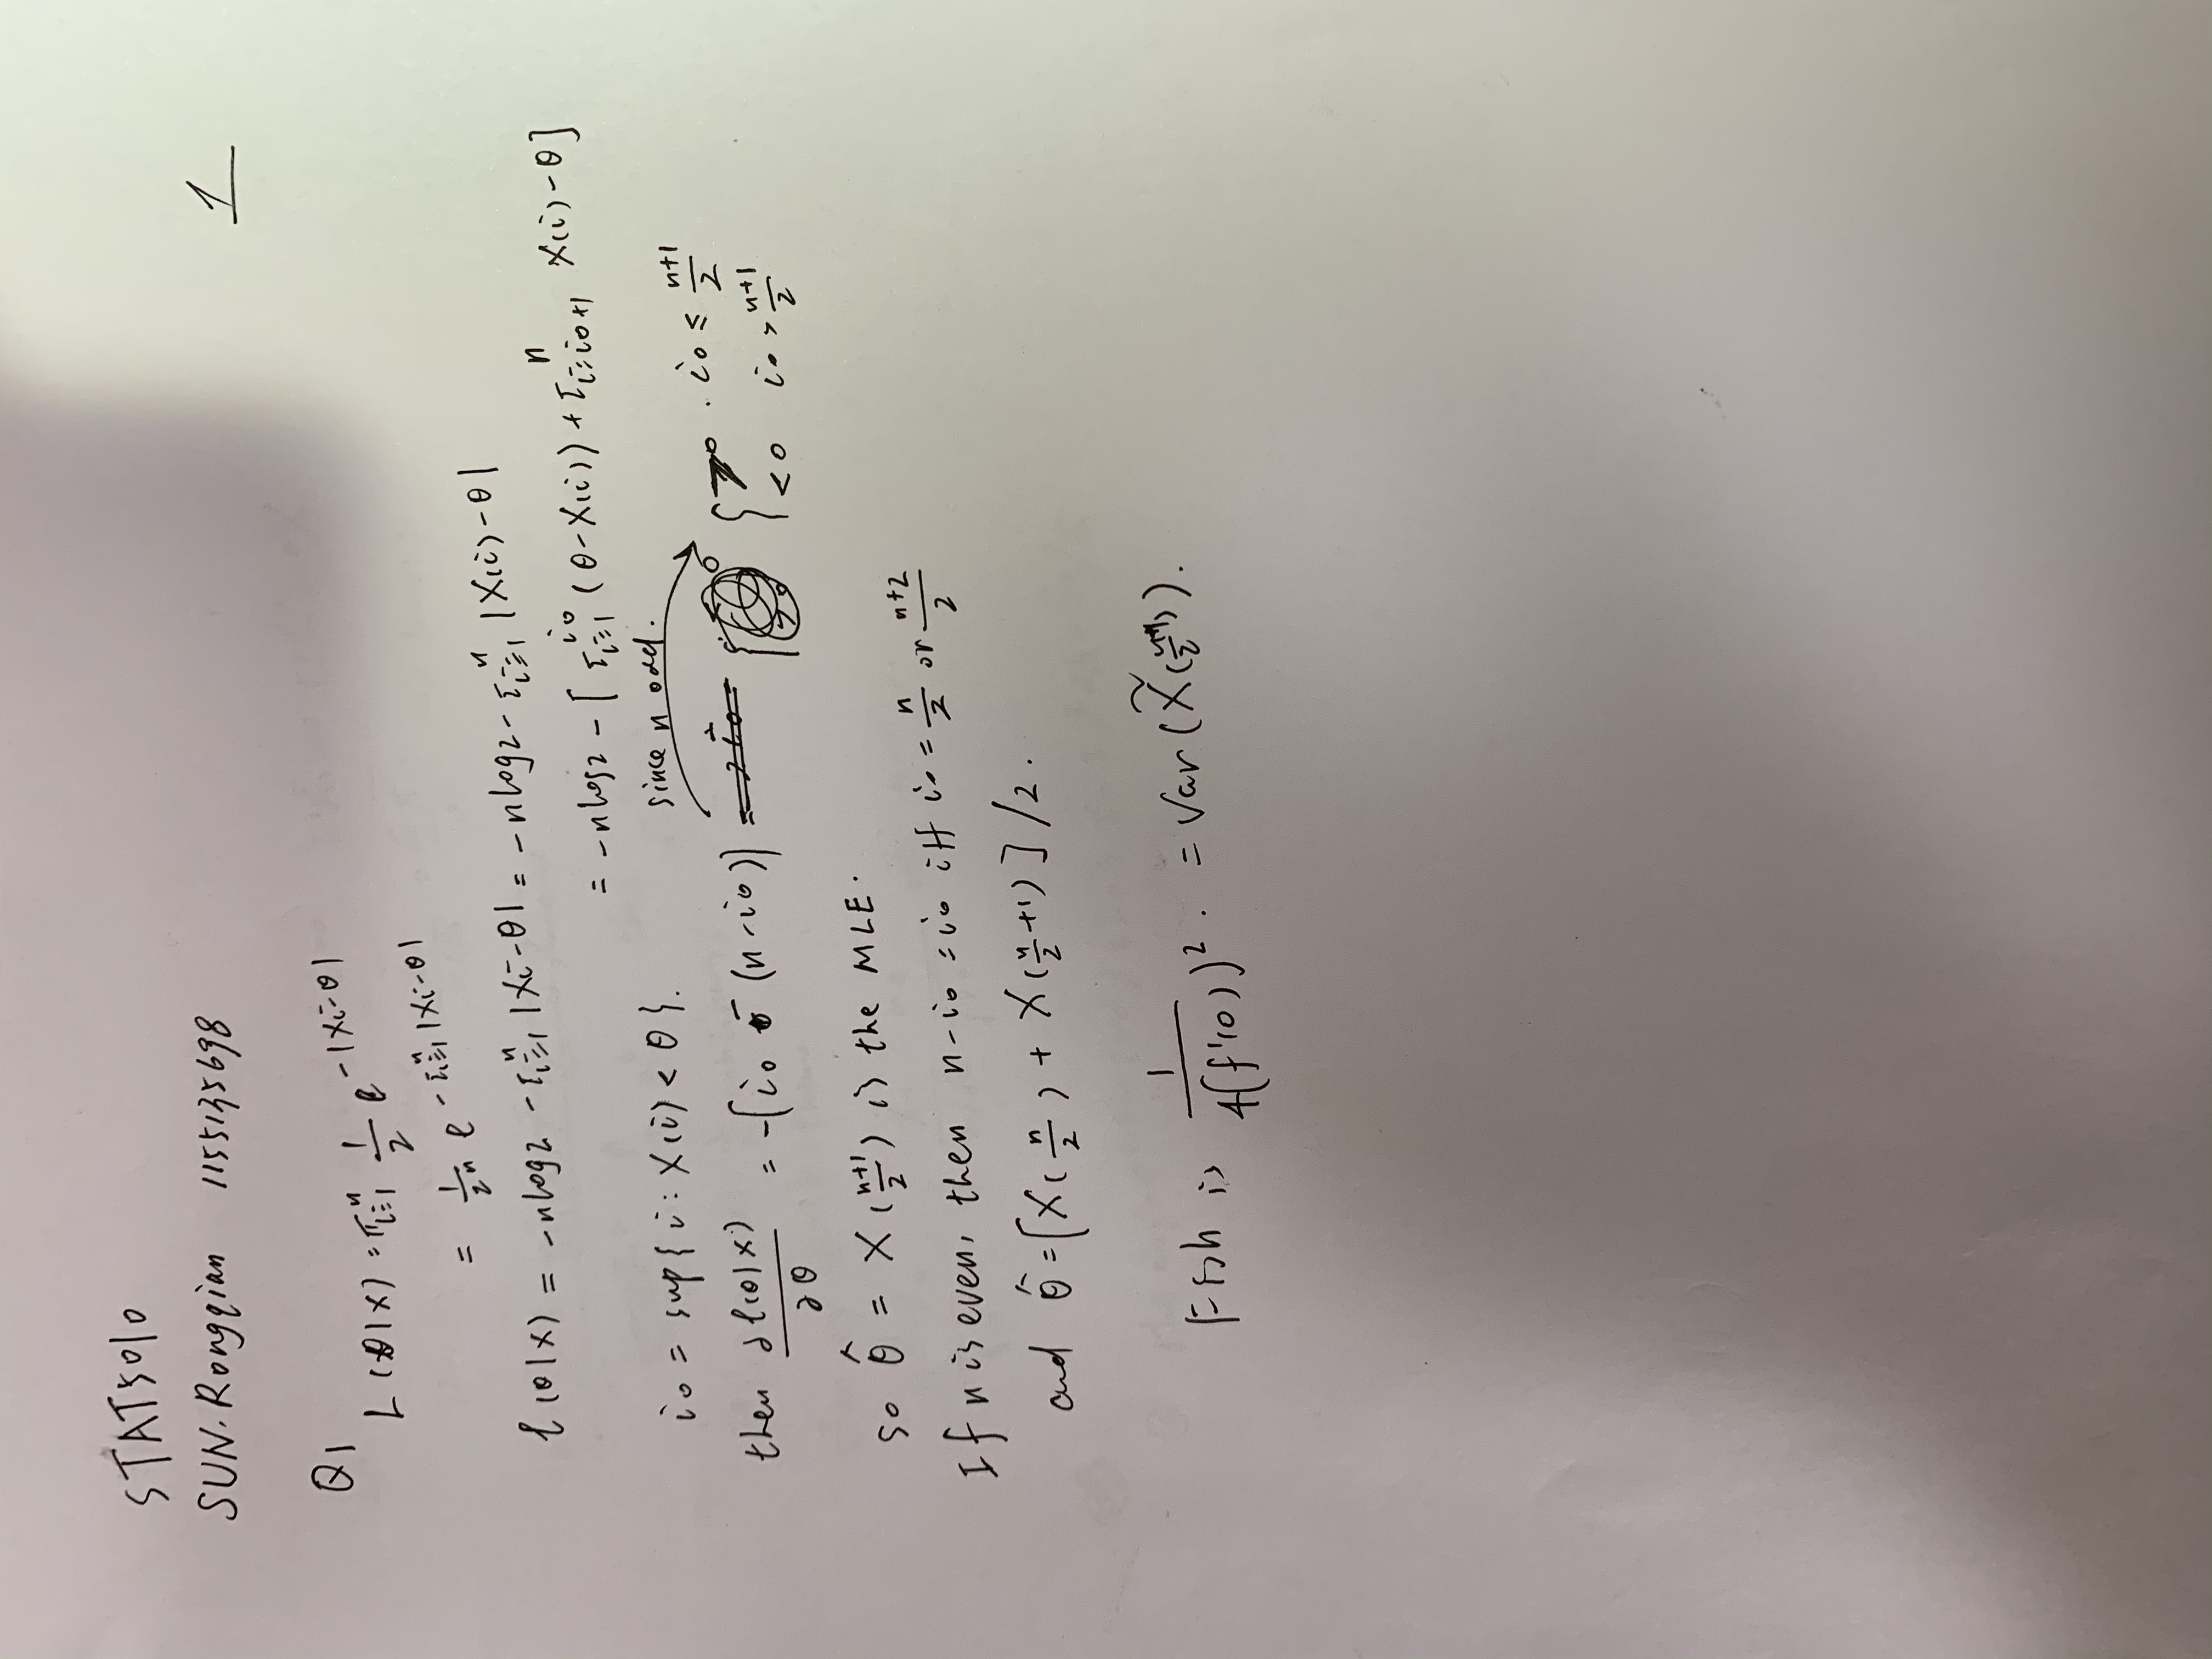 STAT5010
SUN. Rongqian 1155135698
1
Q1
L(θ|X) = Π_{i=1}^{n} 1/2 e^{-|Xi-θ|}
= 1/2^n e^{-Σ_{i=1}^{n} |Xi-θ|}
ℓ(θ|X) = -nlog2 - Σ_{i=1}^{n} |Xi-θ| = -nlog2 - Σ_{i=1}^{n} |X(i)-θ|
= -nlog2 - [Σ_{i=1}^{i0} (θ-X(i)) + Σ_{i=i0+1}^{n} X(i)-θ]
i0 = sup{i: X(i) < θ}.
since n odd.
then ∂ℓ(θ|X)/∂θ = -[i0 - (n-i0)] { >0 . i0 ≤ (n+1)/2
<0 i0 > (n+1)/2
so θ̂ = X((n+1)/2) is the MLE.
If n is even, then n-i0 = i0 iff i0 = n/2 or (n+2)/2
and θ̂ = [X(n/2) + X(n/2+1)]/2.
is 1/(4(f'(0))^2). = Var(X̃((n+1)/2)).